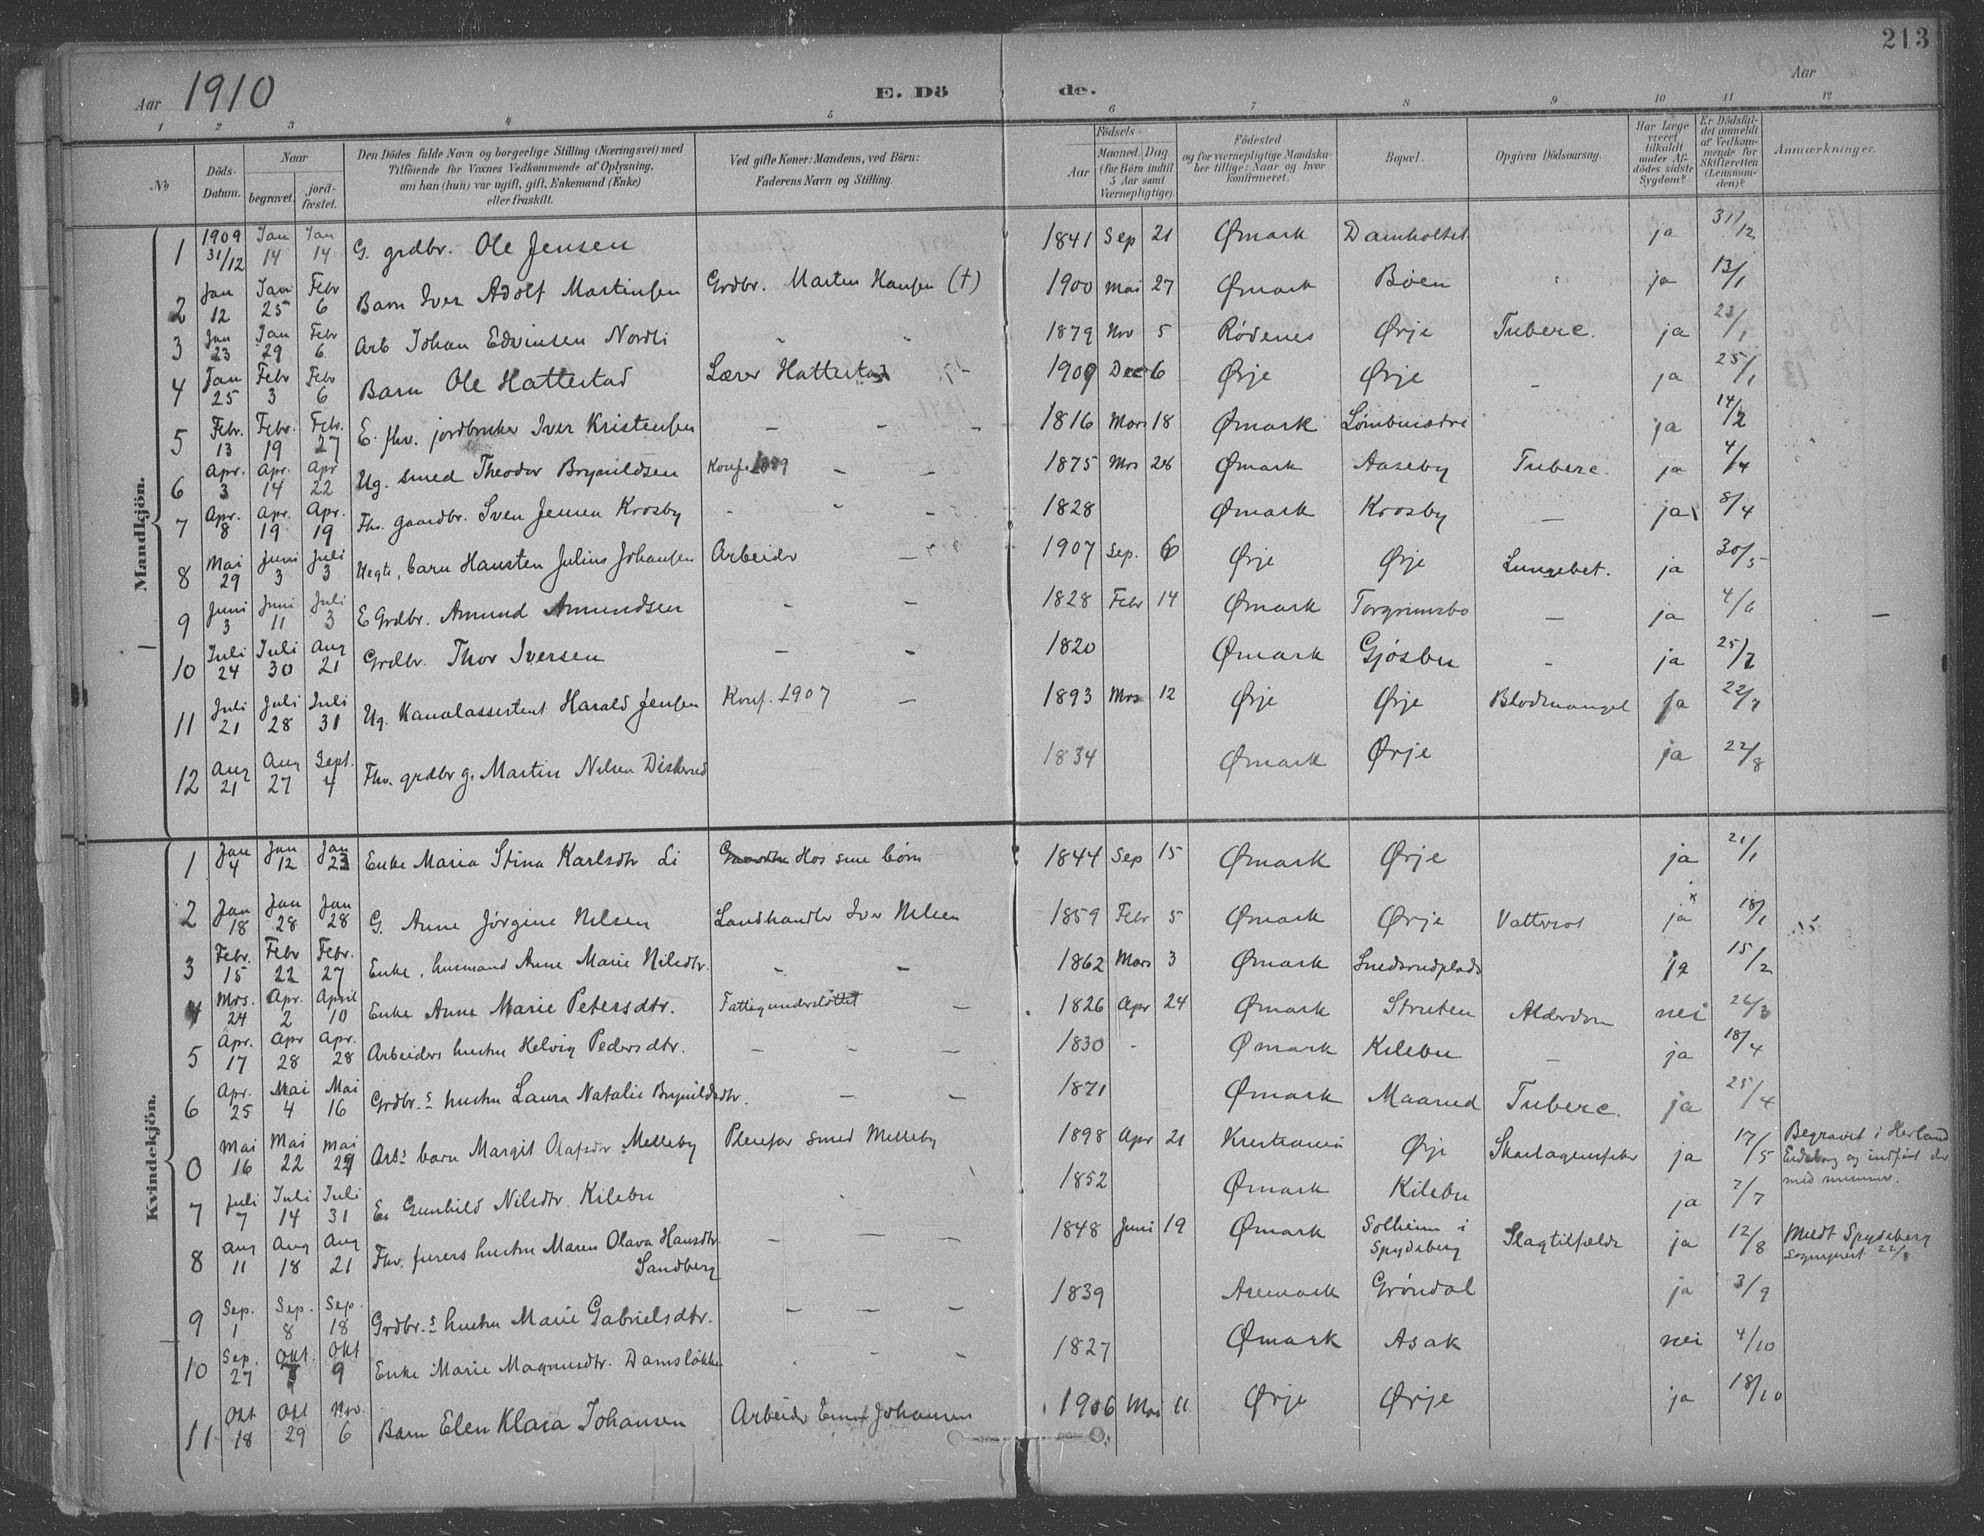 213
Aar 1910 E. Dö de. Aar
1 2 3 4 5 6 7 8 9 10 11 12
No
Döds-Datum.
Naar begravet. jord-fæstet.
Den Dödes fulde Navn og borgerlige Stilling (Næringsvei) med
Tilföiende for Voxnes Vedkommende af Oplysning,
om han (hun) var ugift, gift, Enkemand (Enke)
eller fraskilt.
Ved gifte Koner: Mandens, ved Börn:
Faderens Navn og Stilling.
Födsels-
Aar Maaned. Dag
(for Börn indtil 5 Aar samt Værnepligtige).
Födested
og for værnepligtige Mandska-
ber tillige: Naar og hvor
konfirmeret.
Bopæl.
Opgiven Dödsaarsag.
Har Læge været tilkaldt under Af-dödes sidste Sygdom?
Er Dödsfal-det anmeldt af Vedkom-mende for Skifteretten (Lensman-den)?
Anmærkninger.
Mandkjön.
1 1909 31/12 Jan 14 Jan 14 G. grdbr. Ole Jensen 1841 Sep 21 Ømark Damholtet ja 31/12
2 Jan 12 Jan 25 Febr 6 Barn Iver Adolf Martinsen Grdbr. Martin Hansen (†) 1900 Mai 27 Ømark Böen ja 13/1
3 Jan 23 Jan 29 Febr 6 Arb Johan Edvinsen Nordli 1879 Nov 5 Rødenes Ørje Tuberc. ja 23/1
4 Jan 25 Febr 3 Febr 6 Barn Ole Hattestad Lærer Hattestad 1909 Dec 6 Ørje Ørje - ja 25/1
5 Febr. 13 Febr. 19 Febr. 27 E. fhv. jordbruker Iver Kristensen - - - 1816 Mars 18 Ømark ja 14/2
6 Apr. 3 Apr. 14 Apr 22 Ug. smed Theodor Brynildsen Konf. - - 1875 Mrs 26 Ømark Aaseby Tuberc. ja 4/4
7 Apr. 8 Apr. 19 Apr. 19 Fhv. gaardbr. Sven Jensen Krosby - - - 1828 Ømark Krosby - ja 8/4
8 Mai 29 Juni 3 Juli 3 Uegte, barn Hansten Julius Johansen Arbeider - 1907 Sep. 6 Ørje Ørje Lungebet. ja 30/5
9 Juni 3 Juni 11 Juli 3 E Grdbr. Amund Amundsen - - 1828 Febr 14 Ømark Torgrimsbo - ja 4/6 -
10 Juli 24 Juli 30 Aug 21 Grdbr. Thor Iversen - - 1820 Ømark Gjøsbu - ja 25/7
11 Juli 21 Juli 28 Juli 31 Ug. Kanalassistent Harald Jensen Konf. 1907 - 1893 Mrs 12 Ørje Ørje Blodmangel ja 22/7
12 Aug 21 Aug 27 Sept. 4 Fhv. grdbr g. Martin Nilsen 1834 Ømark Ørje ja 22/8
Kvindekjön.
1 Jan 4 Jan 12 Jan 23 Enke Maria Stina Karlsdtr Li Hos sine børn 1844 Sep 15 Ømark Ørje ja 21/1
2 Jan 18 Jan 28 Jan 28 G. Anne Jørgine Nilsen Landhandler Iver Nilsen 1859 Febr 5 Ømark Ørje Vattersot ja x 18/1
3 Febr. 15 Febr 22 Febr. 27 Enke, husmand Anne Marie Nilsdtr. - - 1862 Mars 3 Ømark Smedsrudplads ja 15/2
4 Mrs. 24 Apr. 2 April 10 Enke Anne Marie Petersdtr. Fattigunderstöttet - 1826 Apr 24 Ømark Struten Alderdom nei 26/3
5 Apr. 17 Apr 28 Apr. 28 Arbeiders hustru Helvig Pedersdtr. - - - 1830 - Ømark Kilebu - ja 18/4
6 Apr. 25 Mai 4 Mai 16 Grdbr.s hustru Laura Natalie Brynildsdtr. - - 1871 Ømark Maarud Tuberc. ja 25/4
0 Mai 16 Mai 22 Mai 29 Arbs barn Margit Olafsdtr Melleby Pleiefar smed Melleby 1898 Apr 21 Kristiania Ørje Skarlagensfeber ja 17/5 Begravet i Herland
Eidsberg og indført der
med nummer.
7 Juli 7 Juli 14 Juli 31 E. Gunhild Nilsdtr. Kilebu 1852 Ømark Kilebu ja 7/7
8 Aug 11 Aug 18 Aug 21 Fhv. furers hustru Maren Olava Hansdtr.
Sandberg - - - 1848 Juni 19 Ømark Solheim i
Spydeberg Slagtilfælde ja 12/8 Meldt Spydeberg
Sogneprest 22/8
9 Sep. 1 Sep. 8 Sep. 18 Grdbr.s hustru Marie Gabrielsdtr. - - - 1839 Aremark Grøndal ja 3/9
10 Sep. 27 Okt. Okt 9 Enke Marie Magnusdtr. Damsløkka 1827 Ømark Asak nei 4/10
11 Okt 18 Okt 29 Nov. 6 Barn Elen Klara Johansen Arbeider Johansen 1906 Mai 11 Ørje Ørje ja 18/10